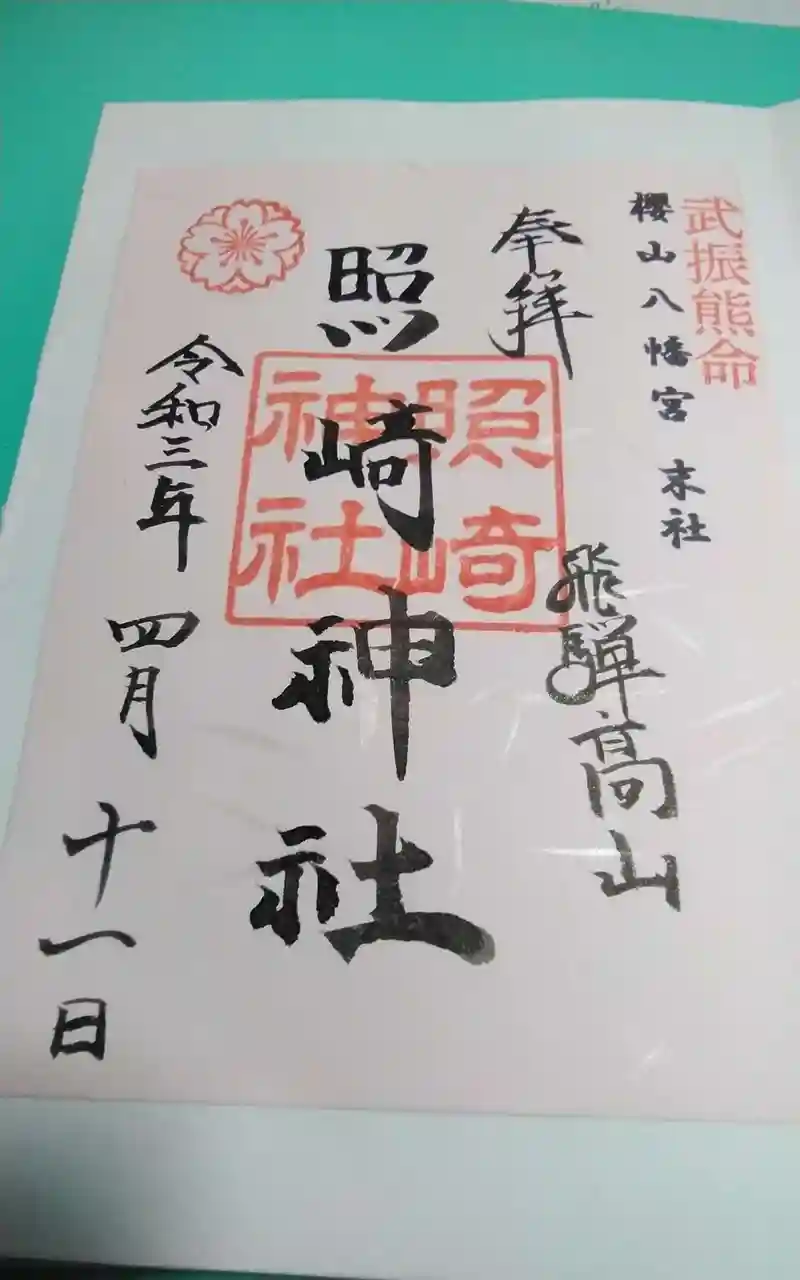 武振熊命
櫻山八幡宮 末社
飛騨高山
奉拝
照崎神社
照崎
神社
令和三年 四月 十一日